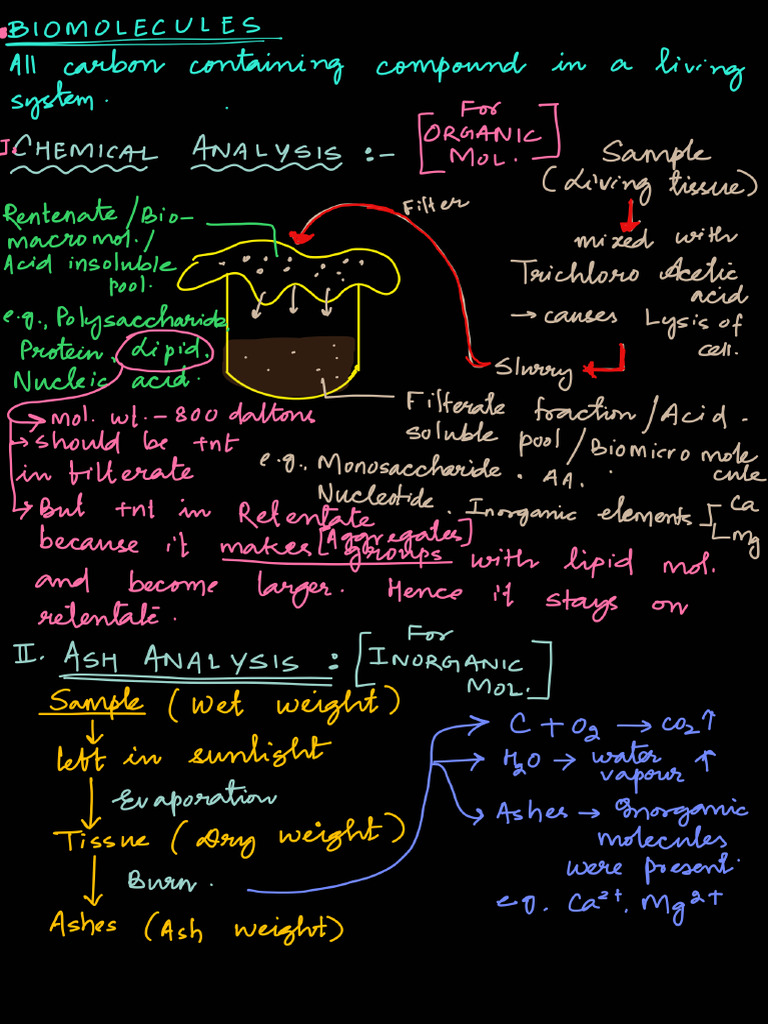 BIOMOLECULES
All carbon containing compound in a living
system.
I. CHEMICAL ANALYSIS :-
[For
ORGANIC
MOL.]
Sample
(Living tissue)
mixed with
Trichloro Acetic
acid
→ causes Lysis of
cell.
Slurry
Filter
Rentenate/Bio-
macromol./
Acid insoluble
pool.
e.g., Polysaccharide,
Protein, Lipid,
Nucleic acid.
→ mol. wt. - 800 daltons
→ should be +nt
in filterate
→ But +nt in Retentate
because it makes [Aggregates]
groups with lipid mol.
and become larger. Hence it stays on
retentate.
Filterate fraction/Acid-
soluble pool/Biomicromole
cule
e.g., Monosaccharide, AA,
Nucleotide. Inorganic elements
Ca
Mg
II. ASH ANALYSIS : [For
INORGANIC
MOL.]
Sample (wet weight)
left in sunlight
Evaporation
Tissue (Dry weight)
Burn.
Ashes (Ash weight)
→ C + O₂ → CO₂↑
→ H₂O → water
vapour ↑
→ Ashes → Inorganic
molecules
were present.
e.g. Ca²⁺, Mg²⁺